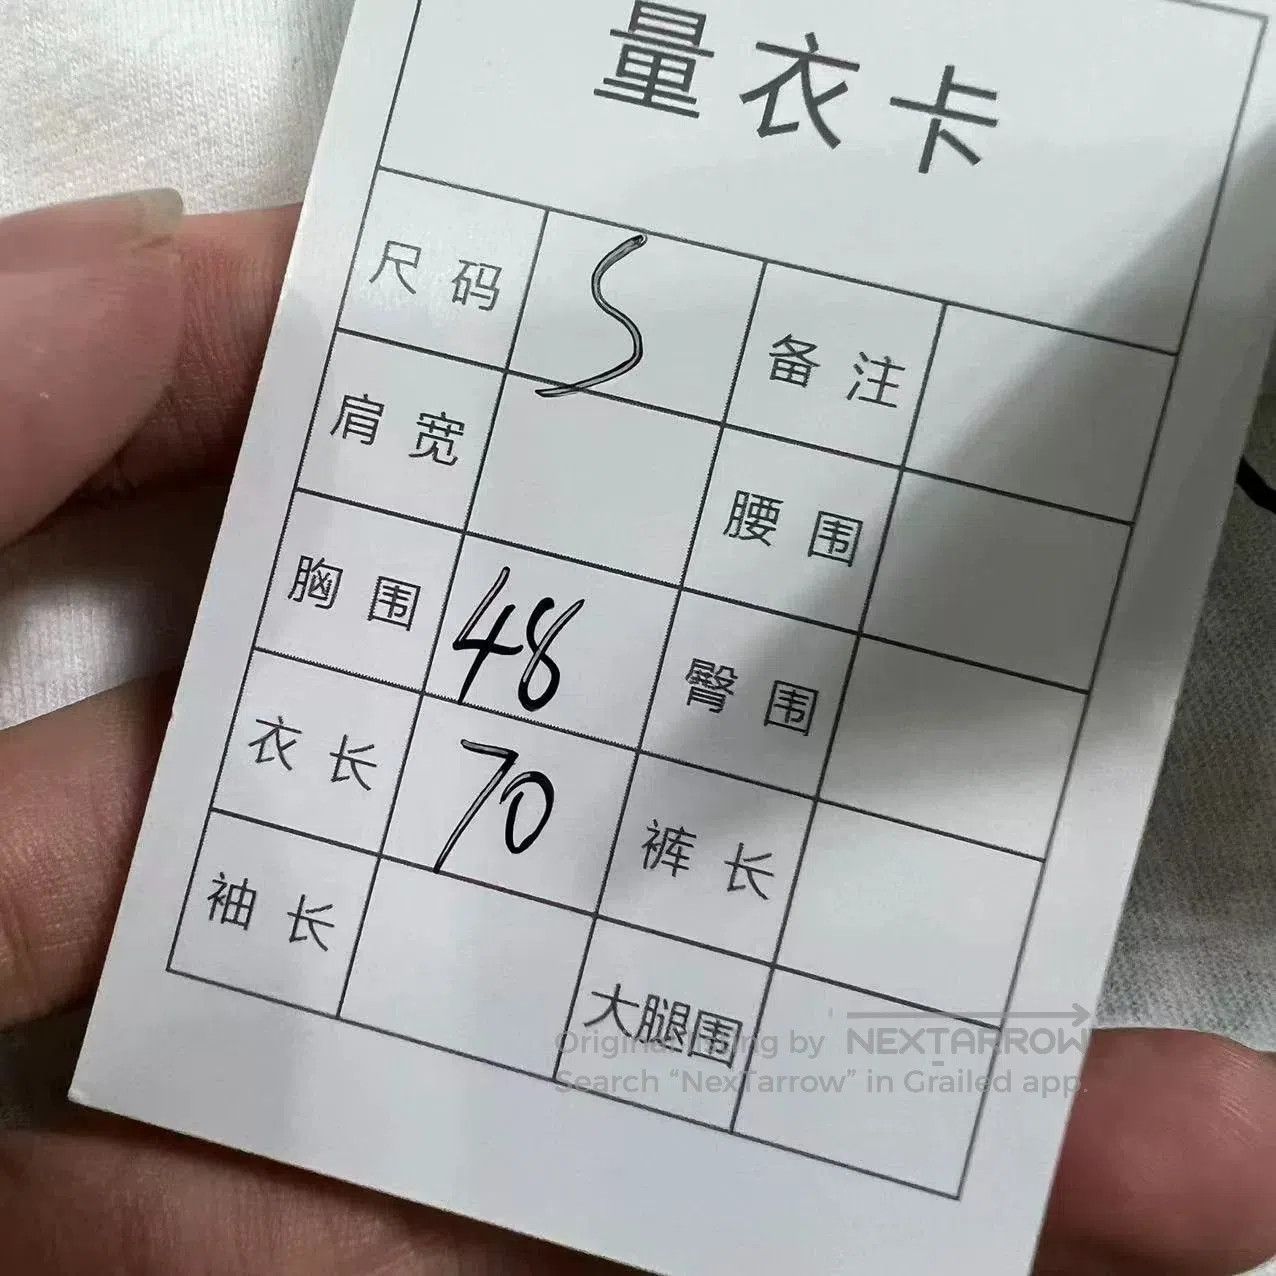 量衣卡
尺码 S 备注
肩宽 腰围
胸围 48 臀围
衣长 70 裤长
袖长 大腿围
Original listing by NEXTARROW
Search “NexTarrow” in Grailed app.